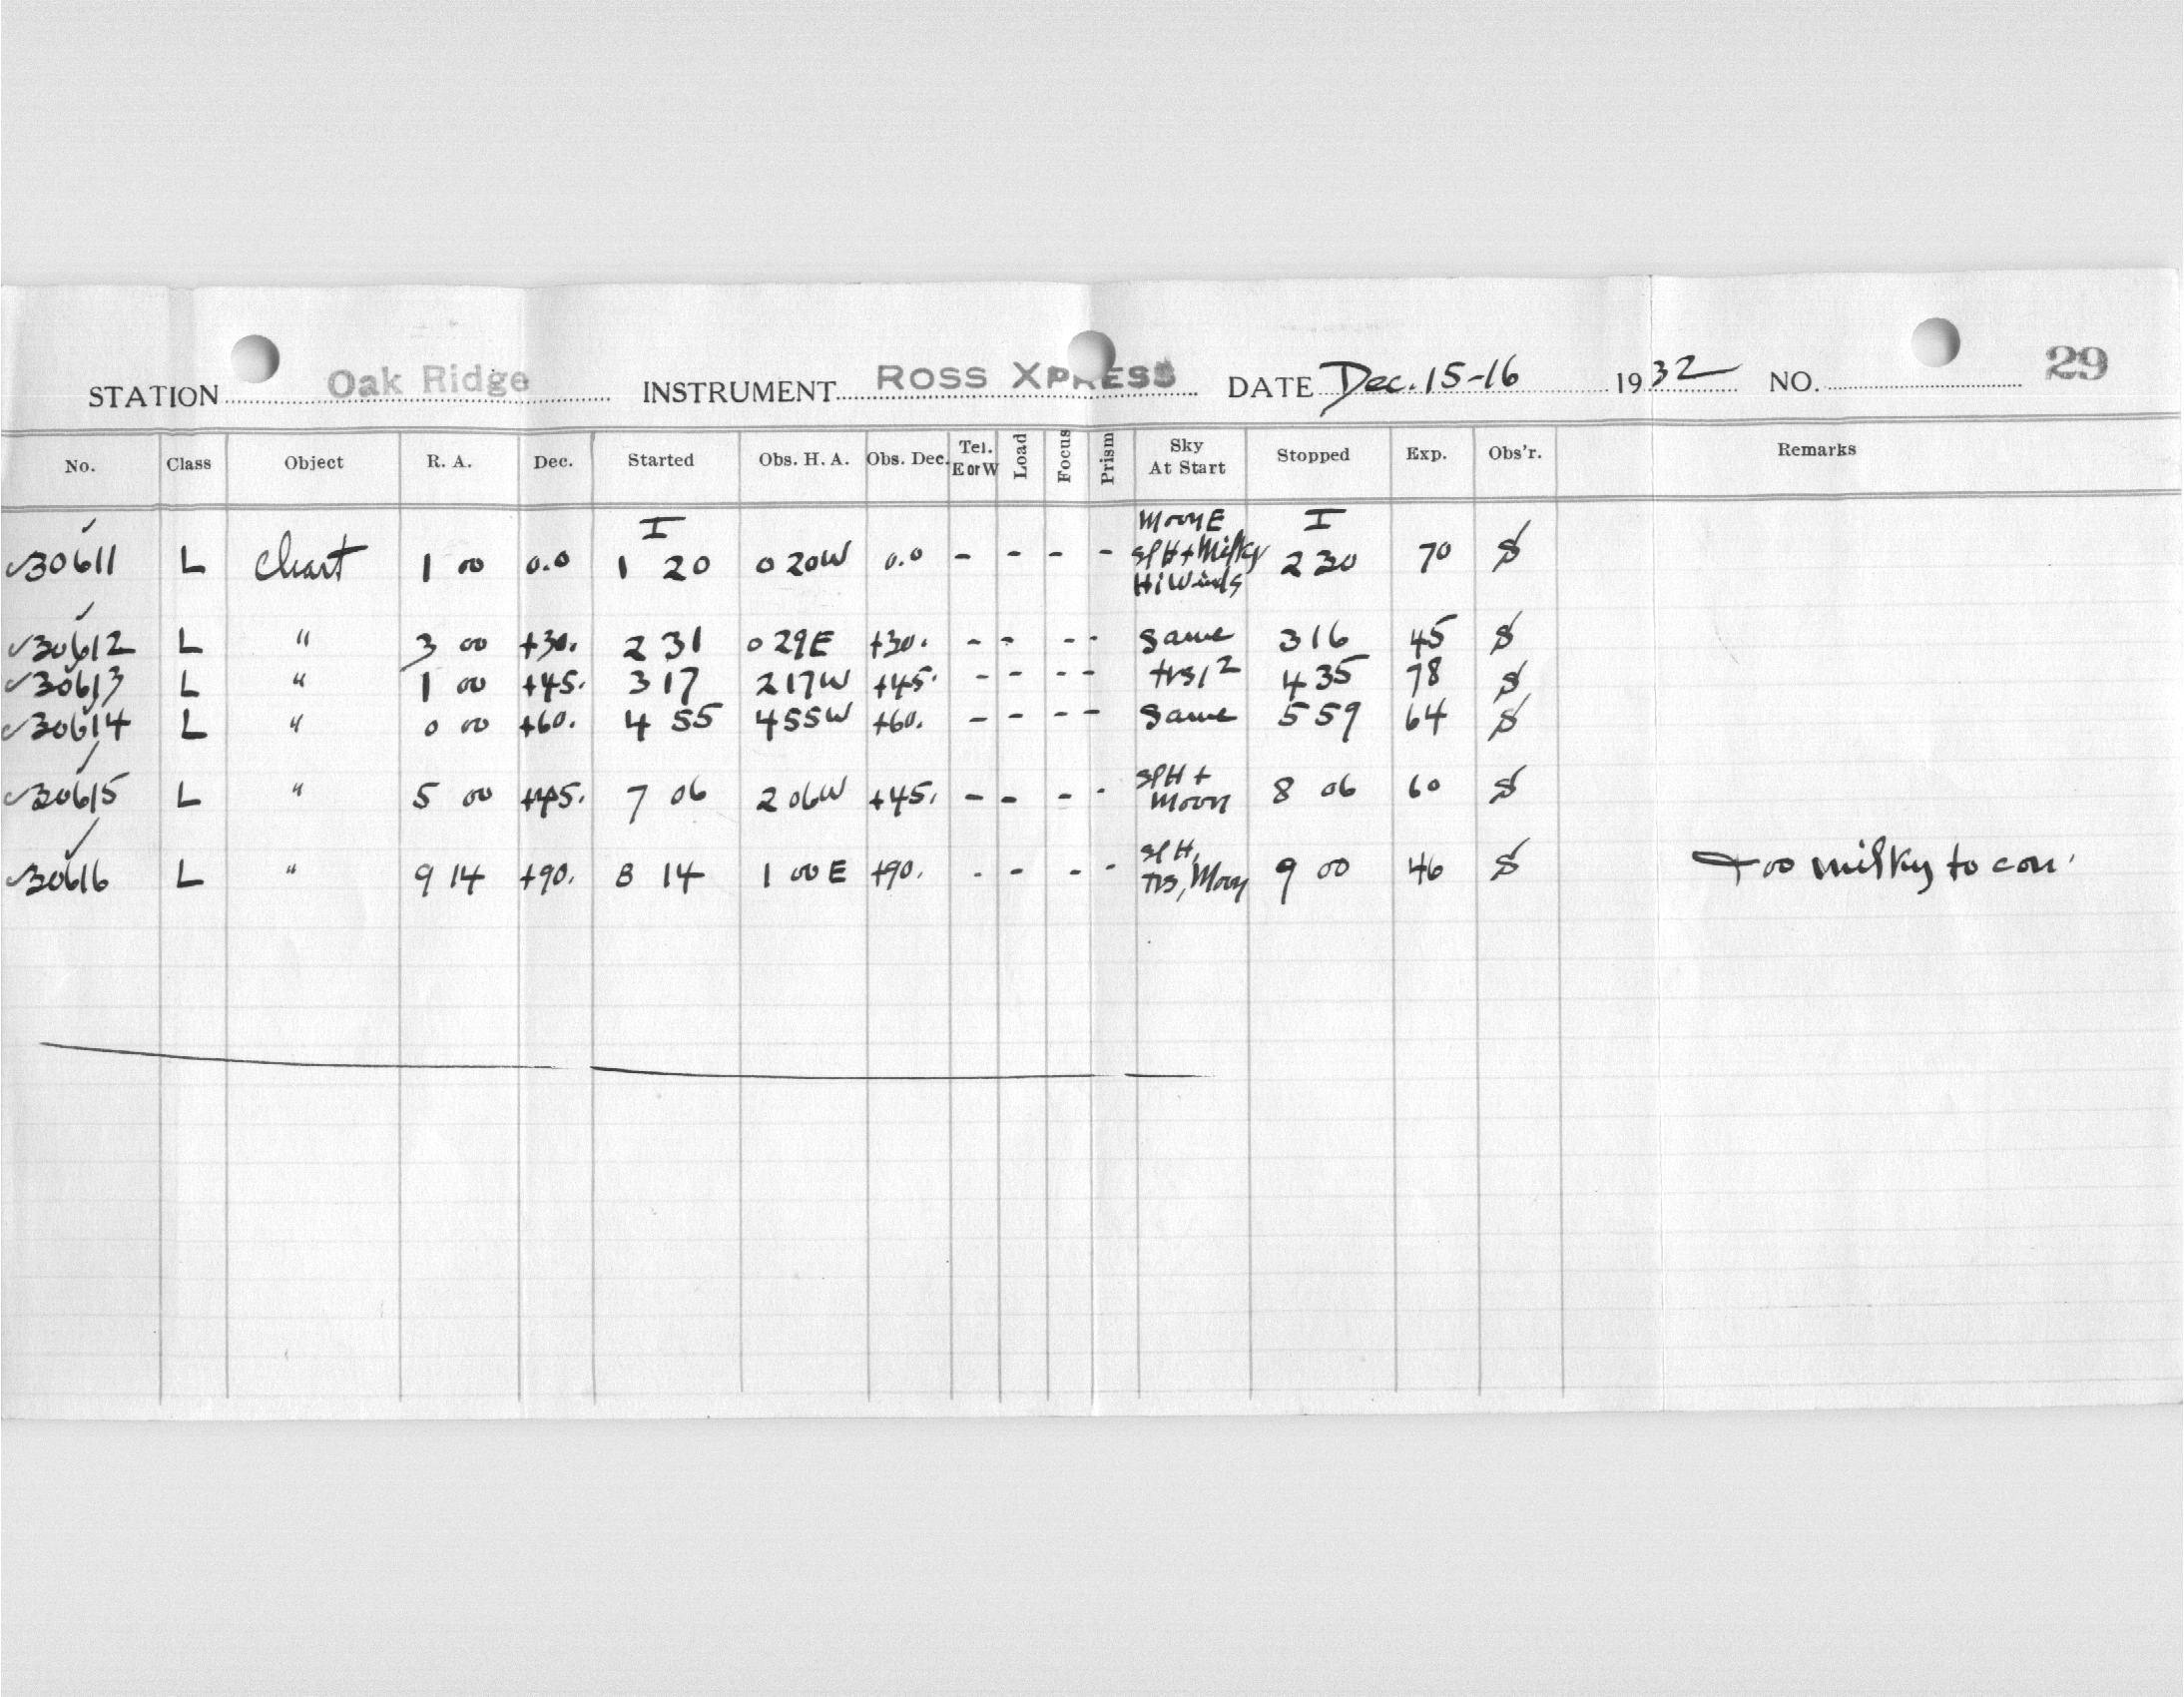 STATION Oak Ridge INSTRUMENT ROSS XPRESS DATE Dec. 15-16 1932 NO. 29
No. Class Object R. A. Dec. Started Obs. H. A. Obs. Dec. Tel. E or W Load Focus Prism Sky At Start Stopped Exp. Obs'r. Remarks
I Moon E I
30611 L Chart 1 00 0.0 1 20 0 20W 0.0 - - - - spH + Milky 2 30 70 S
Hi Winds
30612 L " 3 00 +30. 2 31 0 29E +30. - - - - Same 3 16 45 S
30613 L " 1 00 +45. 3 17 2 17W +45. - - - - trs 1 2 4 35 78 S
30614 L " 0 00 +60. 4 55 4 55W +60. - - - - Same 5 59 64 S
30615 L " 5 00 +45. 7 06 2 06W +45. - - - - spH + Moon 8 06 60 S
30616 L " 9 14 +90. 8 14 1 00 E +90. - - - - spH, Trs, Moon 9 00 46 S Too milky to con'